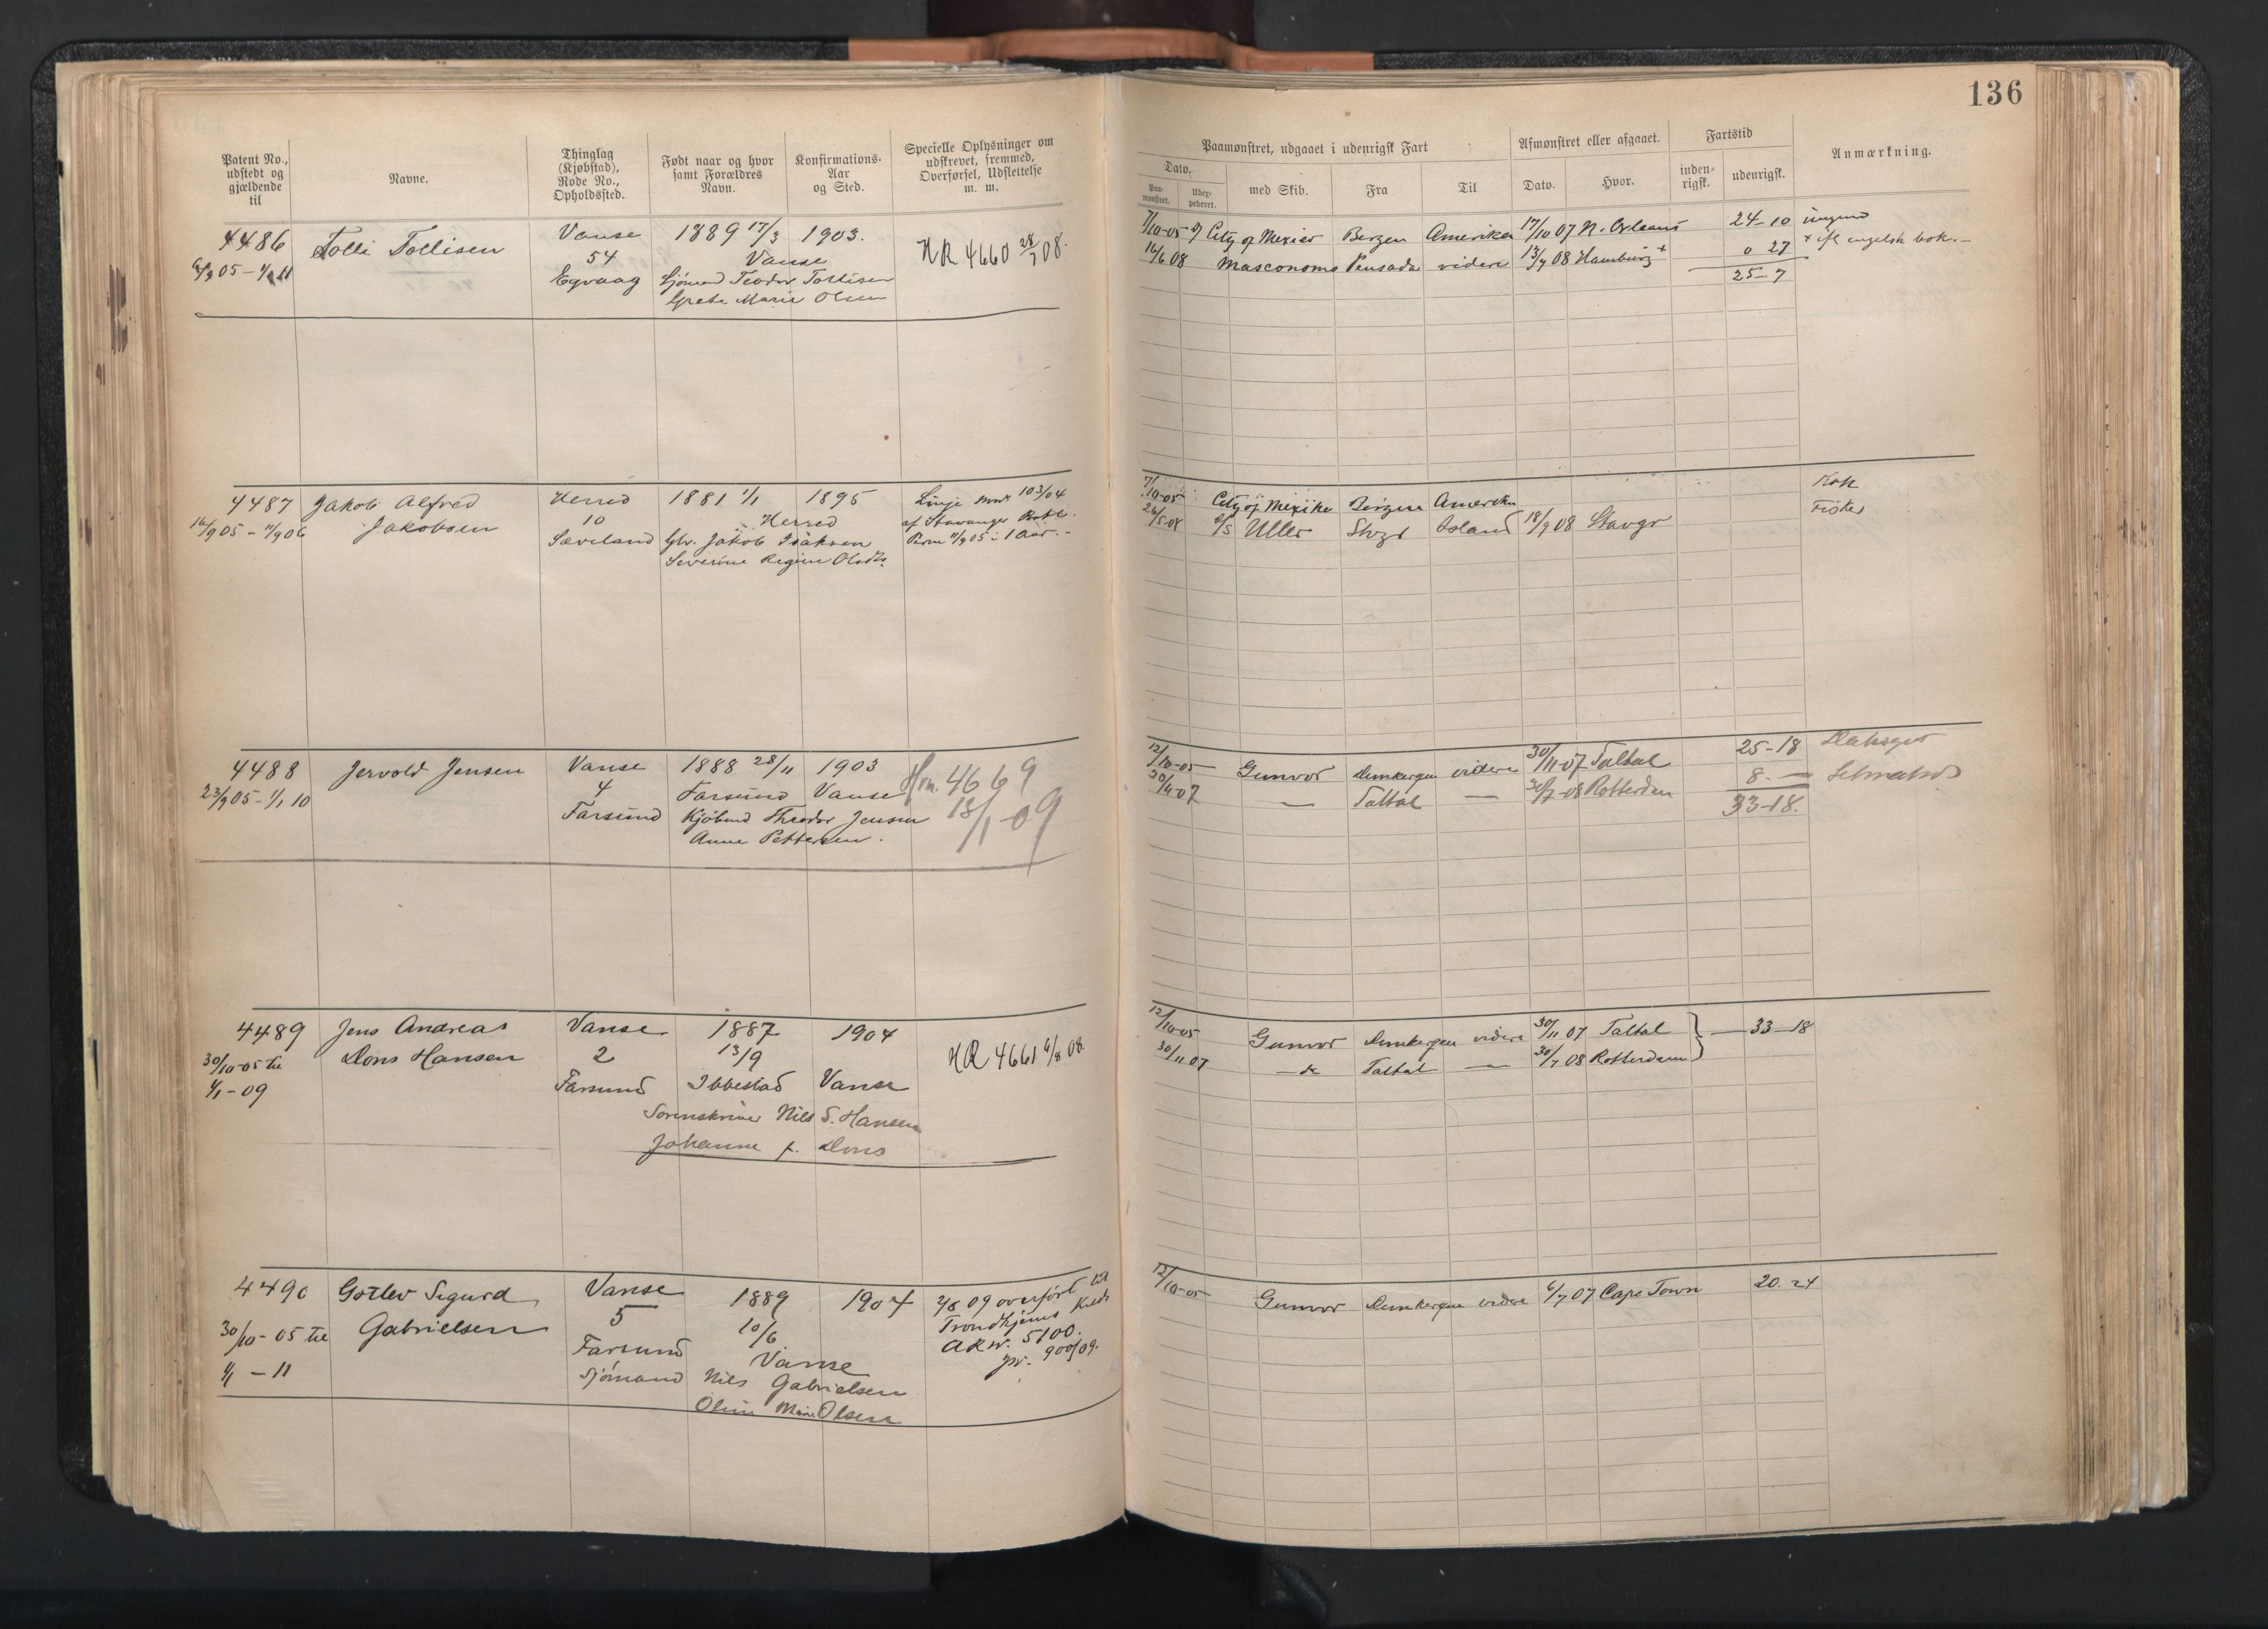 136
Patent No., udstedt og gjældende til
Navne.
Thinglag (Kjøbstad), Rode No., Opholdssted.
Født naar og hvor samt Forældres Navn.
Konfirmations-Aar og Sted.
Specielle Oplysninger om udskrevet, fremmed, Overførsel, Udslettelse m. m.
Paamønstret, udgaaet i udenrigsk Fart
Dato.
Paa-mønstret.
Udex-pederet.
med Skib.
Fra
Til
Afmønstret eller afgaaet.
Dato.
Hvor.
Fartstid
inden-rigsk.
udenrigsk.
Anmærkning.
4486 Tolli Tollisen Vanse 1889 17/3 1903.
54 Vanse HR 4660 28/7 08.
Egvaag Sjömand Teodor Tollisen
Grete Marie Olsen
7/10-05 City of Mexico Bergen Amerika 17/10 07 N. Orleans 24-10 üngmd
16/6 08 Masconomo Pensada videre 13/7 08 Hamburg + 0 27 + ifl engelsk bok.-
25-7
4487 Jakob Alfred Herred 1881 1/1 1895 Linje mnr 103/04
16/9 05 - 11/9 06 Jakobsen 10 Herred af Stavanger
Sæveland Gbr. Jakob Isaksen 11/9 05 - 1 Aar.-
Severine Regine Olsdtr.
7/10-05 City of Mexiko Bergen Amerika Kok
26/5-08 S/S Uller Stvgr Island 18/9 08 Stavgr Fisker
4488 Jervold Jensen Vanse 1888 28/11 1903 Hrn. 4669
23/9 05 - 1/1 10 4 Farsund Vanse 18/1-09
Farsund Kjöbmd Theodor Jensen
Anne Pettersen.
12/10-05 Gunvor Dunkerque videre 30/11-07 Taltal 25-18
30/11-07 — Taltal — 30/7-08 Rotterdam 8. —
33-18.
4489 Jens Andreas Vanse 1887 1904
30/10-05 til Dons Hansen 2 13/9 HR 4661 6/8 08.
1/1-09 Farsund Ibbestad Vanse
Sorenskriver Nils S. Hansen
Johanne f. Dons
12/10-05 Gunvor Dunkerque videre 30/11 07 Taltal } — 33-18
30/11 07 — do Taltal — 30/7 08 Rotterdam
4490 Gotlev Sigurd Vanse 1889 1904 2/8 09 overført til
30/10-05 til Gabrielsen 5 10/6 Trondhjems Kreds
1/1-11 Farsund Vanse AR nr. 5100.
Sjömand Nils Gabrielsen jnr. 900/09.
Oline Marie Olsen
12/10-05 Gunvor Dunkerque videre 6/7 07 Cape Town 20.24